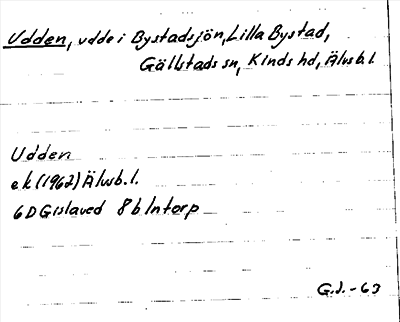 Udden, udde i Bystadsjön, Lilla Bystad,
Gällstads sn, Kinds hd, Älvsb.l.
Udden
ek (1962) Älvsb.l.
6D Gislaved 8b Intorp
G.J.-63